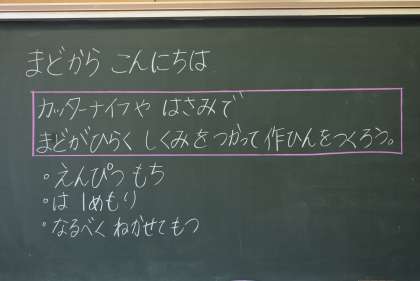 まどから こんにちは
カッターナイフや はさみで
まどがひらく しくみをつかって作ひんをつくろう。
・えんぴつ もち
・は 1めもり
・なるべく ねかせてもつ